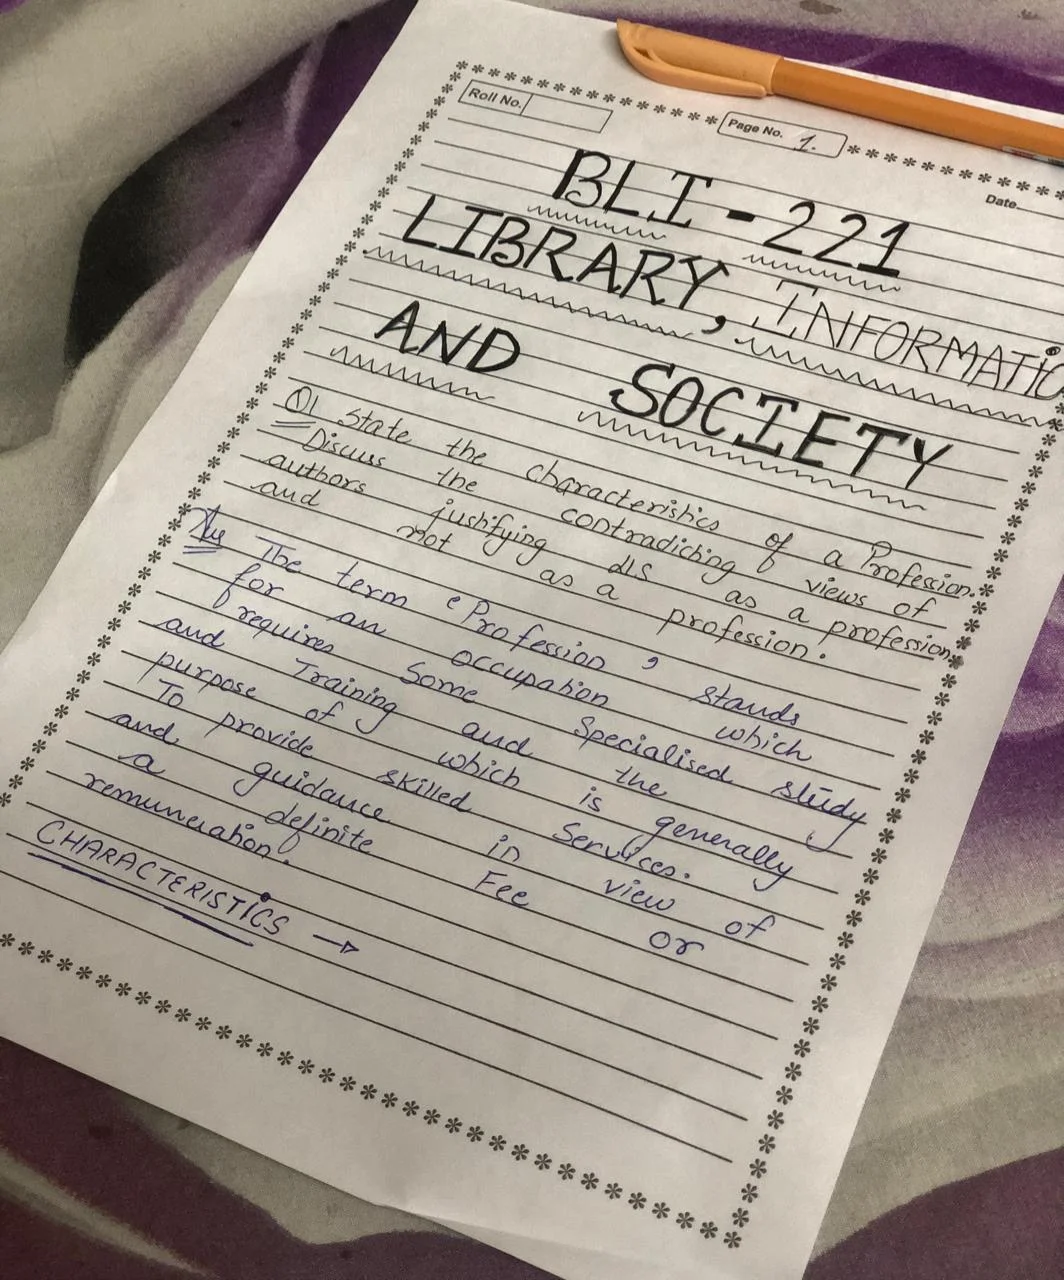 Roll No.
Page No. 1.
Date
BLI - 221
LIBRARY, INFORMATIO
AND SOCIETY
Q1 State the characteristics of a Profession.
Discuss the contradicting views of
authors justifying dls as a profession
and not as a profession.
Ans The term 'Profession' stands
for an occupation which
requires Some Specialised study
and Training and the
purpose of which is generally
To provide skilled Services.
and guidance in view of
a definite Fee or
remuneration.
CHARACTERISTICS →